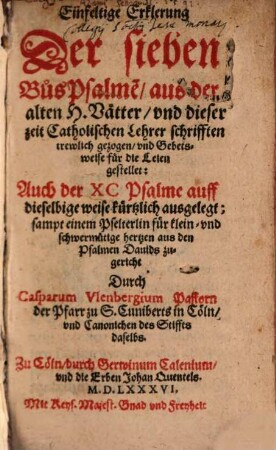 Einfeltige Erklerung
Der sieben
BůsPsalmē/ aus der
alten H. Vätter/ vnd dieser
zeit Catholischen Lehrer schrifften
trewlich gezogen/ vnd Gebets-
weise für die Leien
gestellet:
Auch der XC Psalme auff
dieselbige weise kürtzlich ausgelegt;
sampt einem Pselterlin für klein/ vnd
schwermütige hertzen aus den
Psalmen Dauids zu-
gericht
Durch
Casparum Vlenbergium Pastorn
der Pfarr zu S. Cuniberts in Cöln/
vnd Canonichen des Stiffts
daselbs.
Zu Cöln/ durch Gerwinum Calenium/
vnd die Erben Johan Quentels.
M.D.LXXXVI.
Mit Keys. Majest. Gnad vnd Freyheit